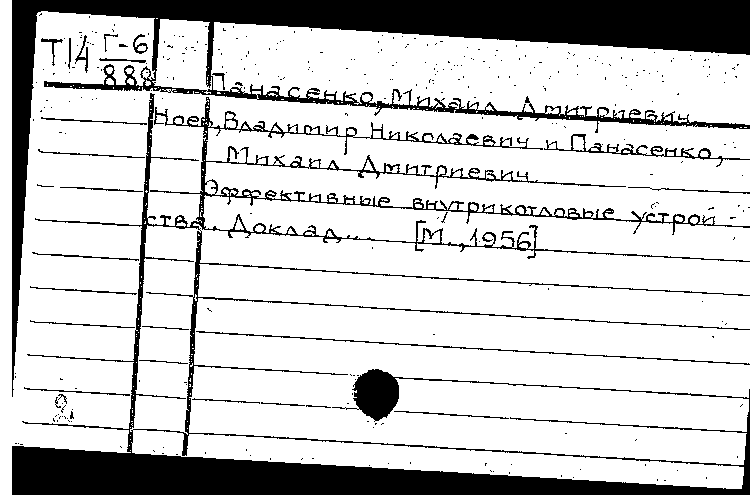 Т14 Г-6
888
Панасенко, Михаил Дмитриевич
Ноев, Владимир Николаевич и Панасенко,
Михаил Дмитриевич.
Эффективные внутрикотловые устрой-
ства. Доклад... [М., 1956]
2.